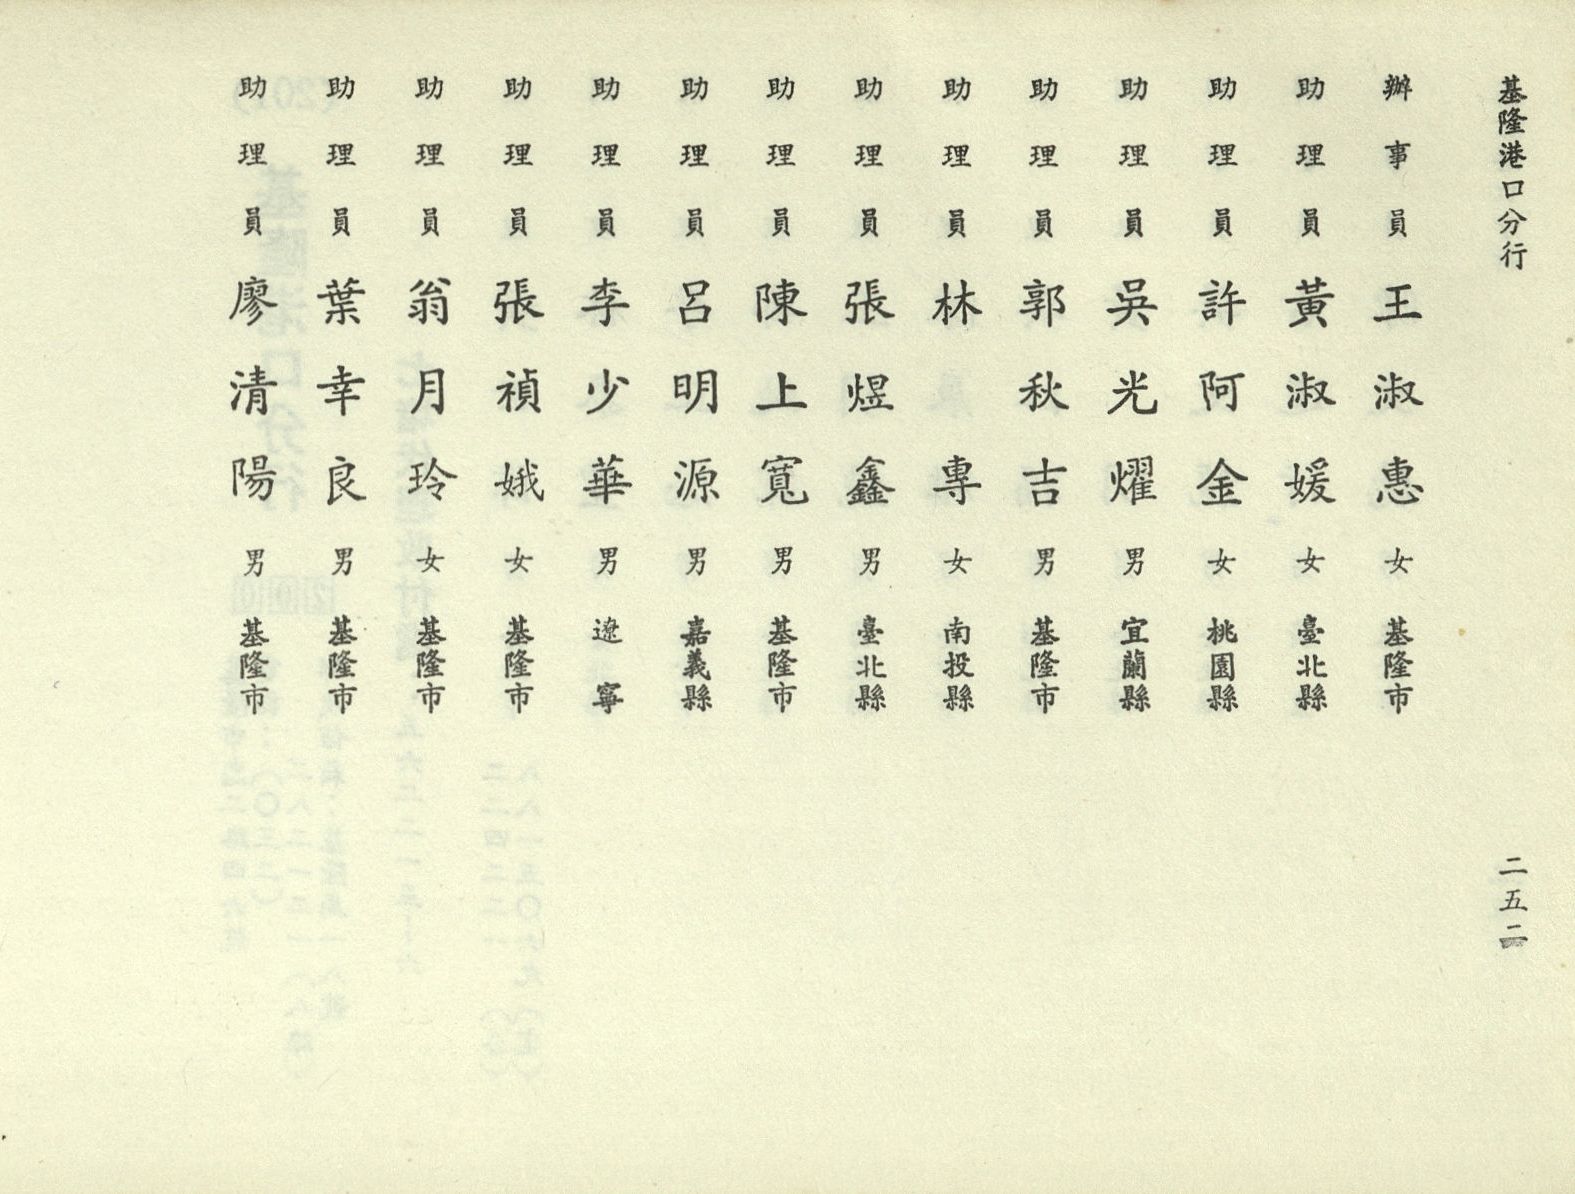 基隆港口分行
二五二
辦事員 王淑惠 女 基隆市
助理員 黃淑媛 女 臺北縣
助理員 許阿金 女 桃園縣
助理員 吳光耀 男 宜蘭縣
助理員 郭秋吉 男 基隆市
助理員 林專 女 南投縣
助理員 張煜鑫 男 臺北縣
助理員 陳上寬 男 基隆市
助理員 呂明源 男 嘉義縣
助理員 李少華 男 遼寧
助理員 張禎娥 女 基隆市
助理員 翁月玲 女 基隆市
助理員 葉幸良 男 基隆市
助理員 廖清陽 男 基隆市